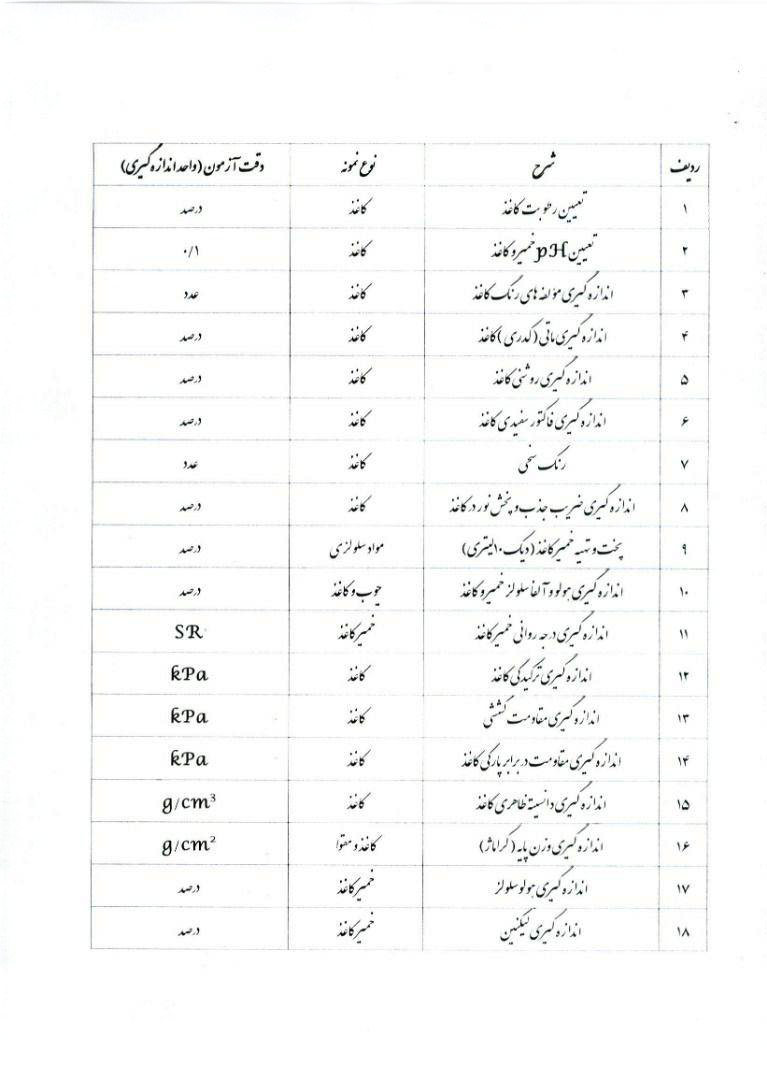 ردیف شرح نوع نمونه دقت آزمون (واحد اندازه گیری)
۱ تعیین رطوبت کاغذ کاغذ درصد
۲ تعیین pH خمیر و کاغذ کاغذ ۰/۱
۳ اندازه گیری مؤلفه های رنگ کاغذ کاغذ عدد
۴ اندازه گیری ماتی (کدری) کاغذ کاغذ درصد
۵ اندازه گیری روشنی کاغذ کاغذ درصد
۶ اندازه گیری فاکتور سفیدی کاغذ کاغذ درصد
۷ رنگ سنجی کاغذ عدد
۸ اندازه گیری ضریب جذب و پخش نور در کاغذ کاغذ درصد
۹ پخت و تهیه خمیر کاغذ (دیگ ۱۰ لیتری) مواد سلولزی درصد
۱۰ اندازه گیری هولو و آلفا سلولز خمیر و کاغذ چوب و کاغذ درصد
۱۱ اندازه گیری درجه روانی خمیر کاغذ خمیر کاغذ SR
۱۲ اندازه گیری ترکیدگی کاغذ کاغذ kPa
۱۳ اندازه گیری مقاومت کششی کاغذ kPa
۱۴ اندازه گیری مقاومت در برابر پارگی کاغذ کاغذ kPa
۱۵ اندازه گیری دانسیته ظاهری کاغذ کاغذ g/cm³
۱۶ اندازه گیری وزن پایه (گراماژ) کاغذ و مقوا g/cm²
۱۷ اندازه گیری هولوسلولز خمیر کاغذ درصد
۱۸ اندازه گیری لیگنین خمیر کاغذ درصد